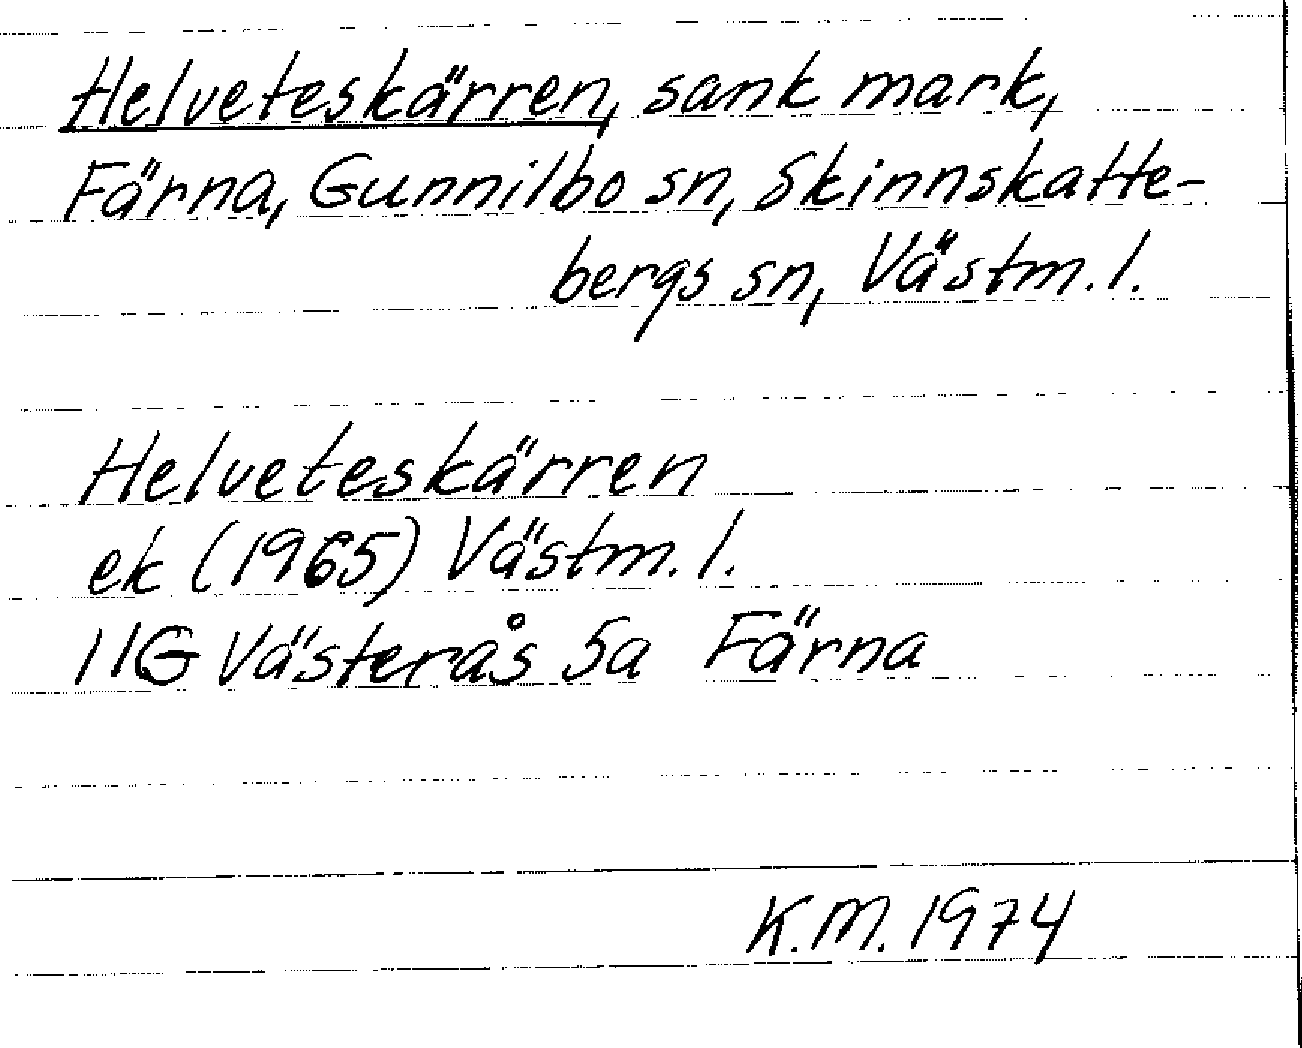 Helveteskärren, sank mark,
Färna, Gunnilbo sn, Skinnskatte-
bergs sn, Västm. l.
Helveteskärren
ek (1965) Västm. l.
11G Västerås 5a Färna
K.M. 1974